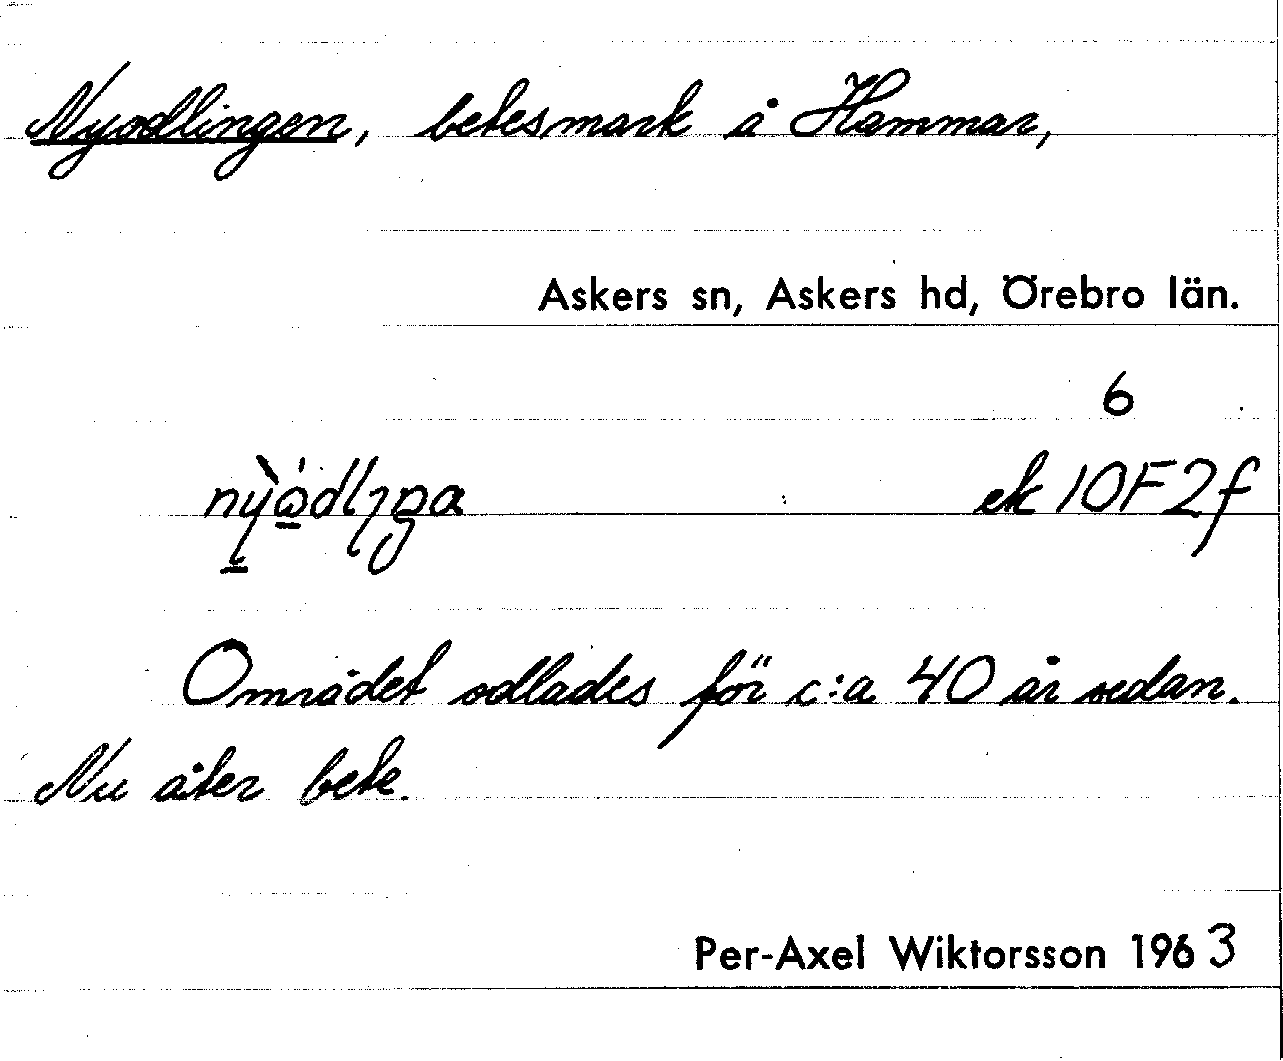 Nyodlingen, betesmark å Hammar,
Askers sn, Askers hd, Örebro län.
6
ek 10F2f
Området odlades för c:a 40 år sedan.
Nu åter bete.
Per-Axel Wiktorsson 1963